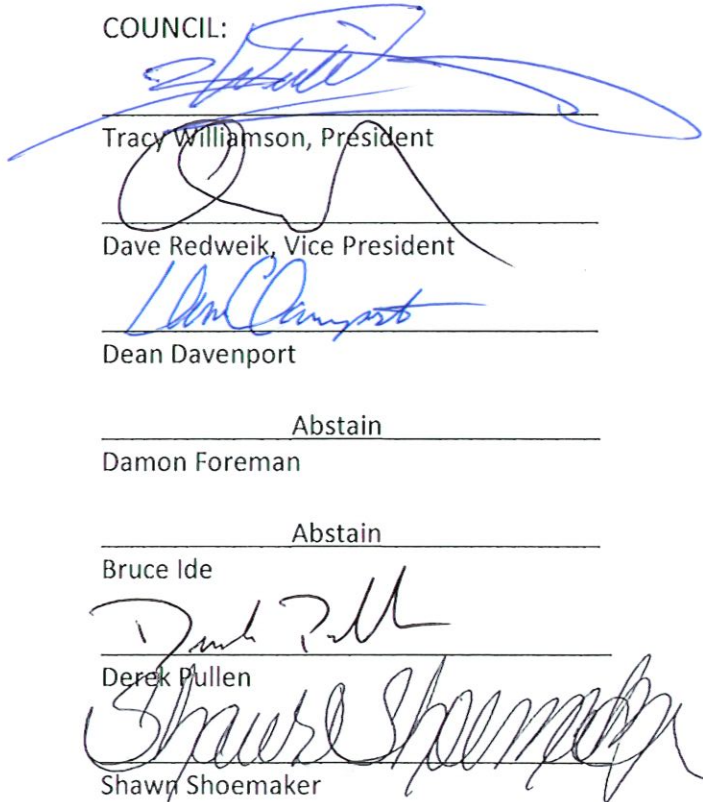 COUNCIL:
Tracy Williamson, President
Dave Redweik, Vice President
Dean Davenport
Abstain
Damon Foreman
Abstain
Bruce Ide
Derek Pullen
Shawn Shoemaker
Shawn Shoemaker